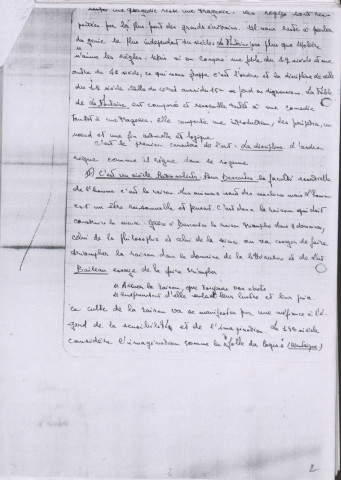 une tragédie reste une tragédie. Les règles sont res-
pectées par la plus part des grands écrivains. Il nous reste à parler
du génie le plus indépendant du siècle: La Fontaine pas plus que Molière
n'aime les règles. Mais si on compare une fable du 17 siècle et une
autre du 16 siècle, ce qui nous frappe c'est l'ordre et la discipline de celle
du 17 siècle
La Fontaine est composée et ressemble tantôt à une comédie
tantôt à une tragédie. Elle comporte une introduction, des péripéties, un
noeud et une fin naturelle et logique.
C'est le premier caractère de l'art: La discipline d'ordre
règne comme il règne dans le royaume.
C'est un siècle Rationaliste. Pour Descartes la faculté essentielle
de l'homme c'est la raison
est un être raisonnable et pensant. C'est donc la raison qui doit
construire le mieux. Grâce à Descartes la raison triomphe dans 2 domaines,
celui de la philosophie et celui de la science on va essayer de faire
triompher la raison dans le domaine de la littérature et de l'art
Boileau essaye de la faire triompher
"Aimez la raison, que toujours vos écrits
"Empruntent d'elle seule et leur lustre et leur prix
Ce culte de la raison va se manifester par une méfiance à l'é-
gard de la sensibilité et de l'imagination. Le 17è siècle
considère l'imagination comme la "folle du logis" (Montaigne)
2